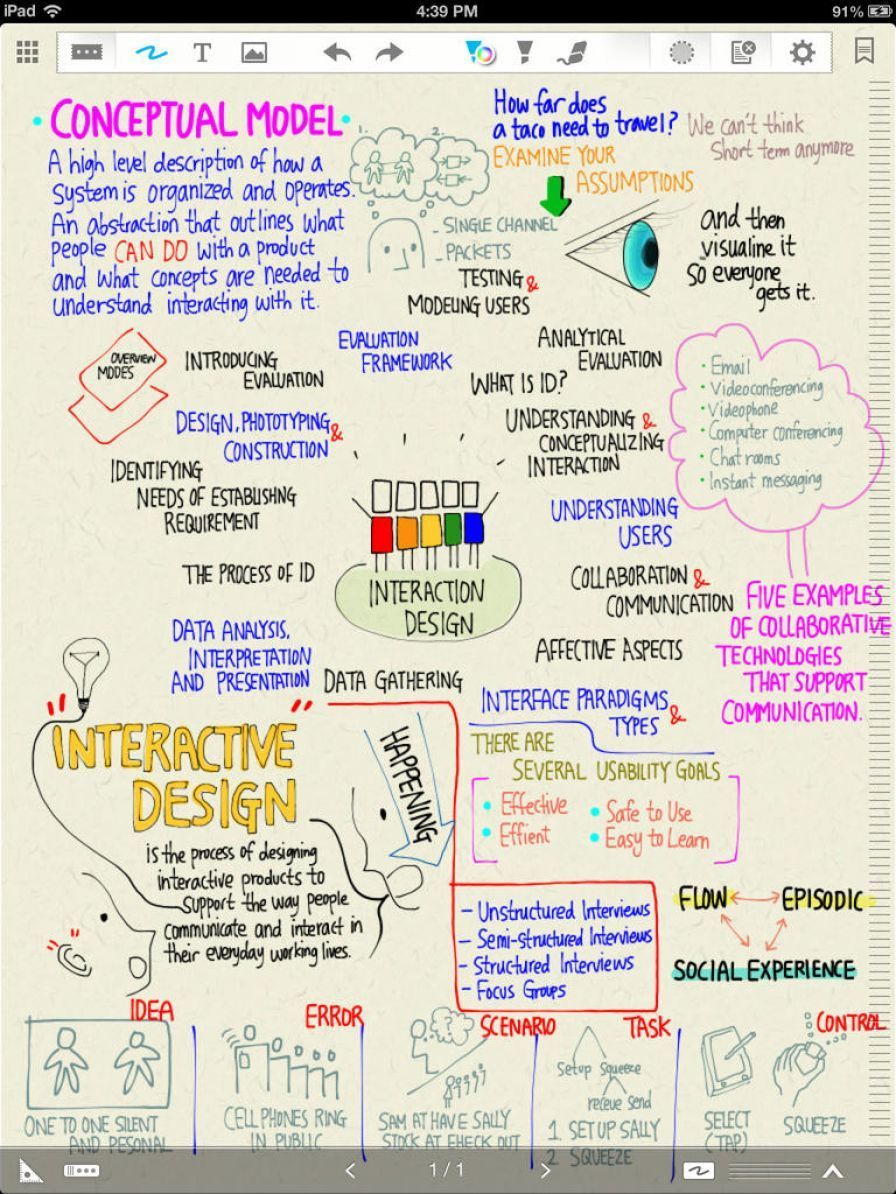 iPad
4:39 PM
91%
T
CONCEPTUAL MODEL
A high level description of how a
System is organized and operates.
An abstraction that outlines what
people CAN DO with a product
and what concepts are needed to
understand interacting with it.
1.
2.
- SINGLE CHANNEL
- PACKETS
How far does
a taco need to travel?
We can't think
Short term anymore
EXAMINE YOUR
ASSUMPTIONS
and then
visualine it
So everyone
gets it.
TESTING &
MODELING USERS
OVERVIEW
MODES
INTRODUCING
EVALUATION
EVALUATION
FRAMEWORK
ANALYTICAL
EVALUATION
WHAT IS ID?
DESIGN, PHOTOTYPING &
CONSTRUCTION
UNDERSTANDING &
CONCEPTUALIZING
INTERACTION
• Email
• Videoconferencing
• Videophone
• Computer conferencing
• Chat rooms
• Instant messaging
IDENTIFYING
NEEDS OF ESTABLISHNG
REQUIREMENT
UNDERSTANDING
USERS
THE PROCESS OF ID
INTERACTION
DESIGN
COLLABORATION &
COMMUNICATION
FIVE EXAMPLES
OF COLLABORATIVE
TECHNOLOGIES
THAT SUPPORT
COMMUNICATION.
DATA ANALYSIS,
INTERPRETATION
AND PRESENTATION
DATA GATHERING
AFFECTIVE ASPECTS
INTERFACE PARADIGMS &
TYPES
"INTERACTIVE"
DESIGN
is the process of designing
interactive products to
support the way people
communicate and interact in
their everyday working lives.
HAPPENING
THERE ARE
SEVERAL USABILITY GOALS
• Effective
• Effient
• Safe to Use
• Easy to Learn
- Unstructured Interviews
- Semi-structured Interviews
- Structured Interviews
- Focus Groups
FLOW
EPISODIC
SOCIAL EXPERIENCE
IDEA
ONE TO ONE SILENT
AND PESONAL
ERROR
CELL PHONES RING
IN PUBLIC
SCENARIO
SAM AT HAVE SALLY
STOCK AT EHECK OUT
TASK
Setup Squeeze
receue send
1 SET UP SALLY
2 SQUEEZE
CONTROL
SELECT
(TAP)
SQUEEZE
1 / 1